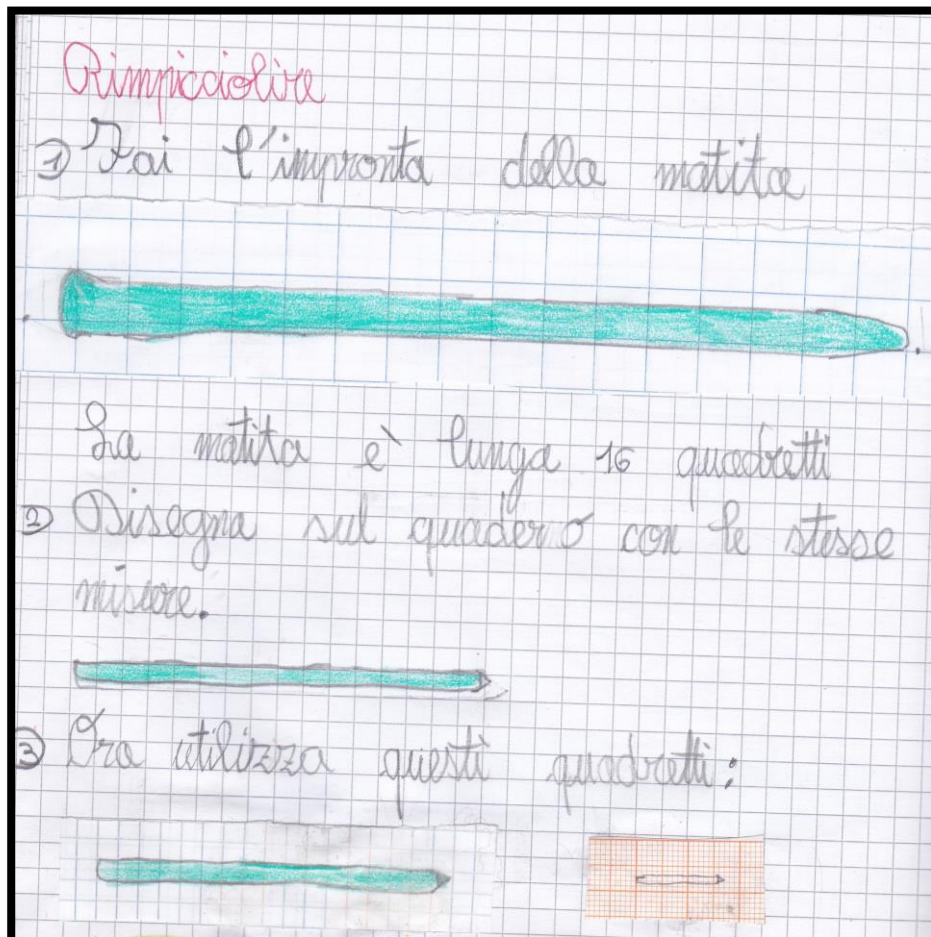 Rimpicciolire
1) Fai l'impronta della matita
La matita è lunga 16 quadretti
2) Disegna sul quaderno con le stesse
misure.
3) Ora utilizza questi quadretti: